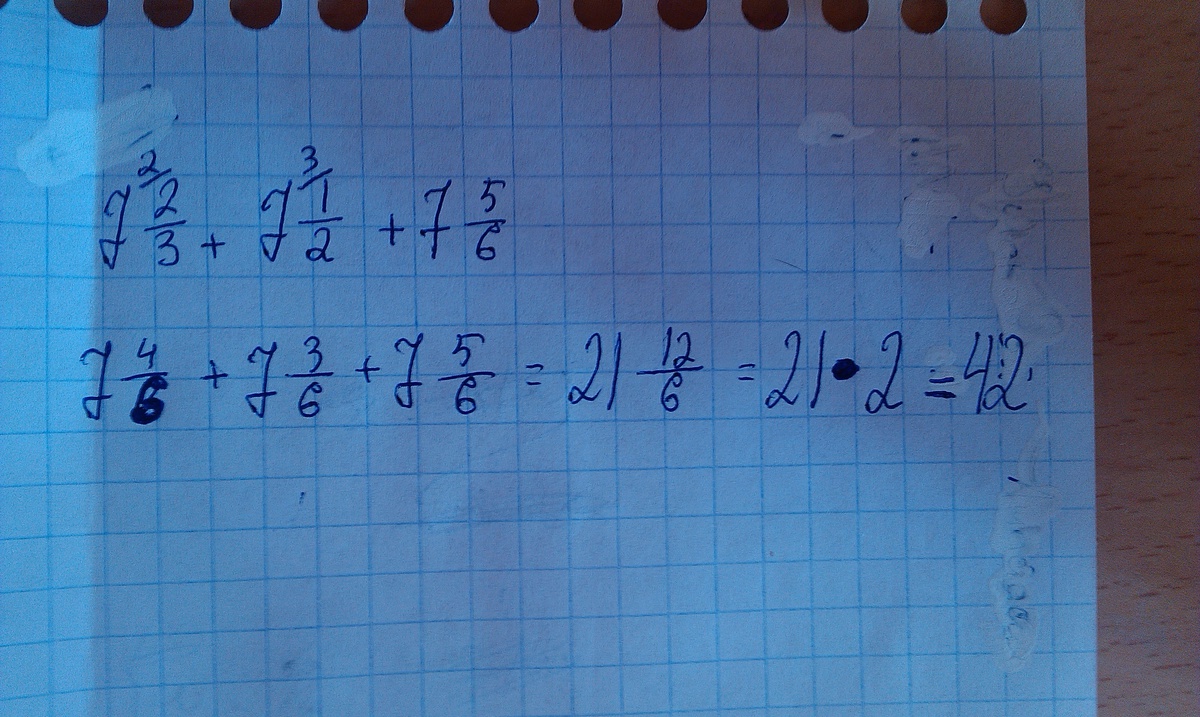 7 2/3 + 7 1/2 + 7 5/6
7 4/6 + 7 3/6 + 7 5/6 = 21 12/6 = 21 • 2 = 42